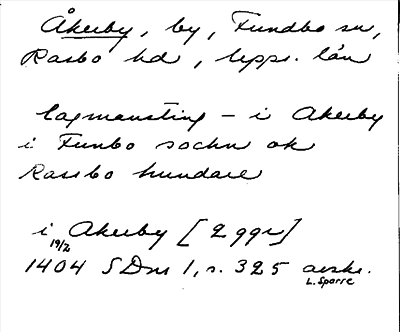 Åkerby, by, Fundbo sn,
Rasbo hd, Upps. län
lagmansting – i Akerby
i Funbo sochn ok
Rassbo hundare
i Akerby [2 ggr]
19/2
1404 SDns 1, s. 325 avskr.
L. Sparre